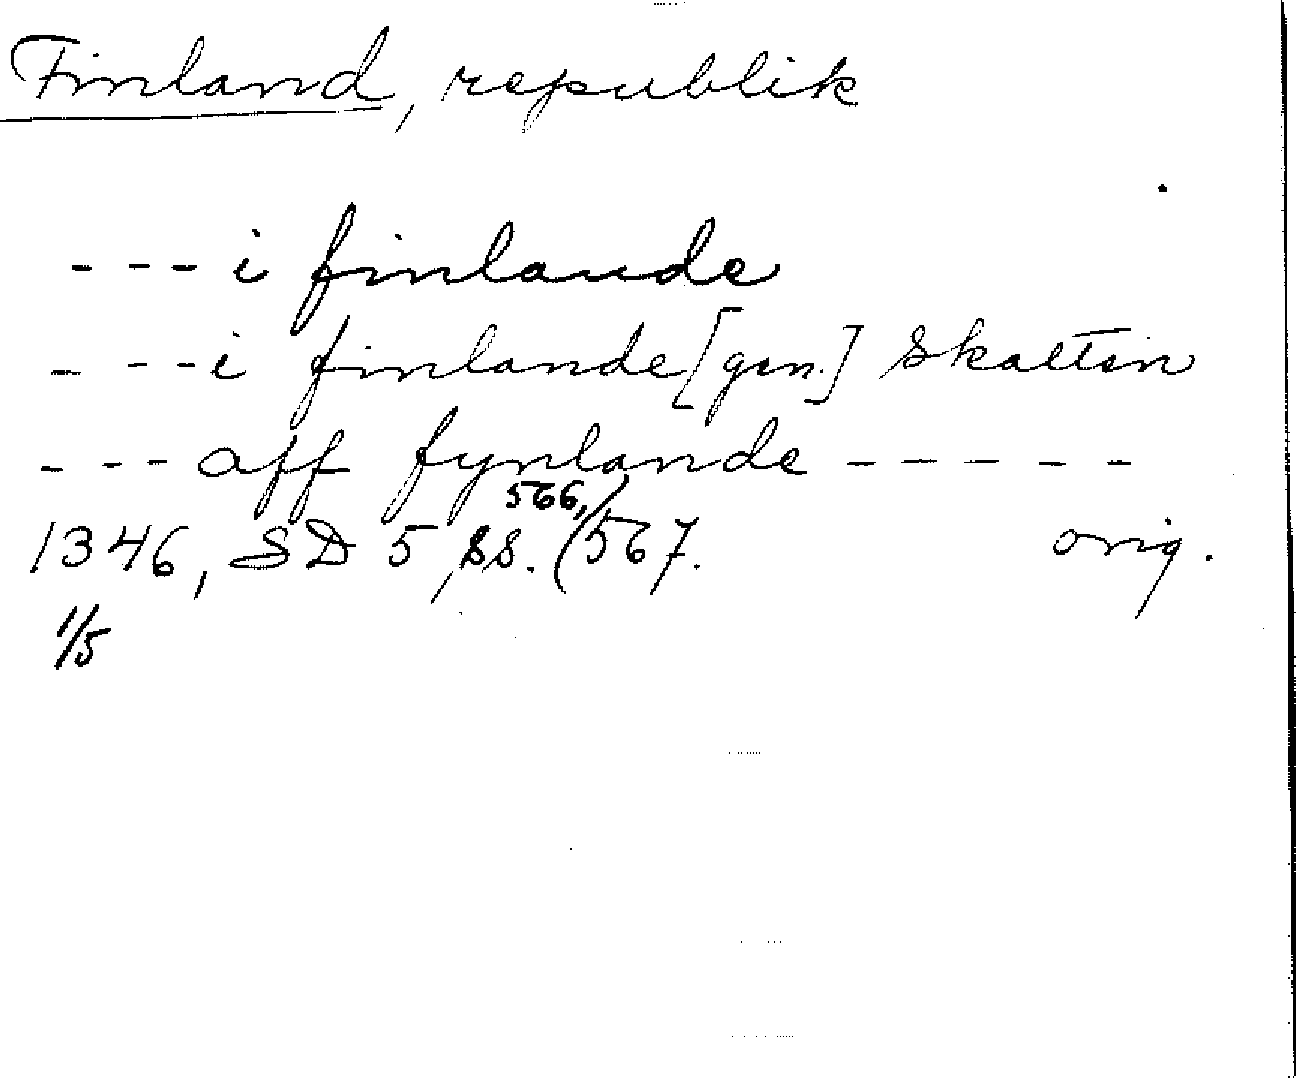 Finland, republik
- - - i finlande
- - - i finlande [gen.] skatten
- - - aff fynlande - - - - -
1346, SD 5, ss. 566, 567. orig.
1/5